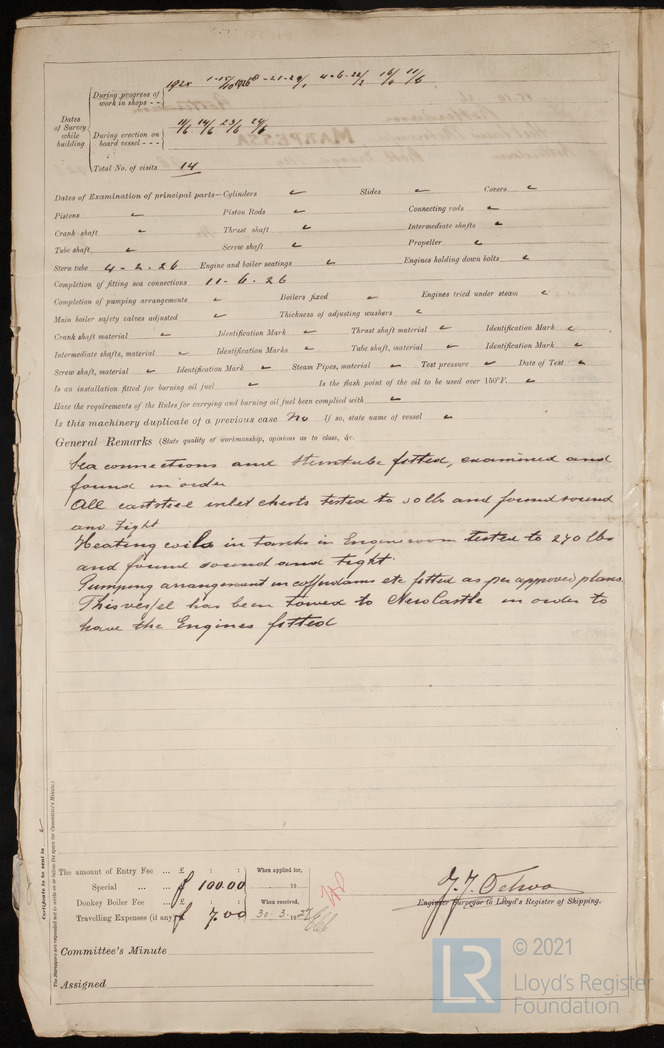 During progress of work in shops - -
1925
Dates of Survey while building
During erection on board vessel - - -
11/6 14/6 23/6 24/6
Total No. of visits 14
MARPESSA
Dates of Examination of principal parts—Cylinders Slides Covers
Pistons Piston Rods Connecting rods
Crank shaft Thrust shaft Intermediate shafts
Tube shaft Screw shaft Propeller
Stern tube 4-2-26 Engine and boiler seatings Engines holding down bolts
Completion of fitting sea connections 11-6-26
Completion of pumping arrangements Boilers fixed Engines tried under steam
Main boiler safety valves adjusted Thickness of adjusting washers
Crank shaft material Identification Mark Thrust shaft material Identification Mark
Intermediate shafts, material Identification Marks Tube shaft, material Identification Mark
Screw shaft, material Identification Mark Steam Pipes, material Test pressure Date of Test
Is an installation fitted for burning oil fuel Is the flash point of the oil to be used over 150°F.
Have the requirements of the Rules for carrying and burning oil fuel been complied with
Is this machinery duplicate of a previous case No If so, state name of vessel
General Remarks (State quality of workmanship, opinions as to class, &c.
Sea connections and sterntube fitted, examined and
found in order
All caststeel inlet chests tested to lbs and found sound
and tight
Heating coils in tanks in Engineroom tested to 270 lbs
and found sound and tight.
Pumping arrangement in cofferdams etc fitted as per approved plans.
This vessel has been towed to NewCastle in order to
have the Engines fitted
Certificate to be sent to
(The Surveyors are requested not to write on or below the space for Committee's Minute.)
The amount of Entry Fee ... £ : : When applied for,
Special ... ... ƒ 100.00 19
Donkey Boiler Fee ... £ : : When received,
Travelling Expenses (if any) ƒ 7.00 30.3.19
J. J. Ochoa
Engineer Surveyor to Lloyd's Register of Shipping.
Committee's Minute
Assigned
LR
© 2021
Lloyd's Register
Foundation